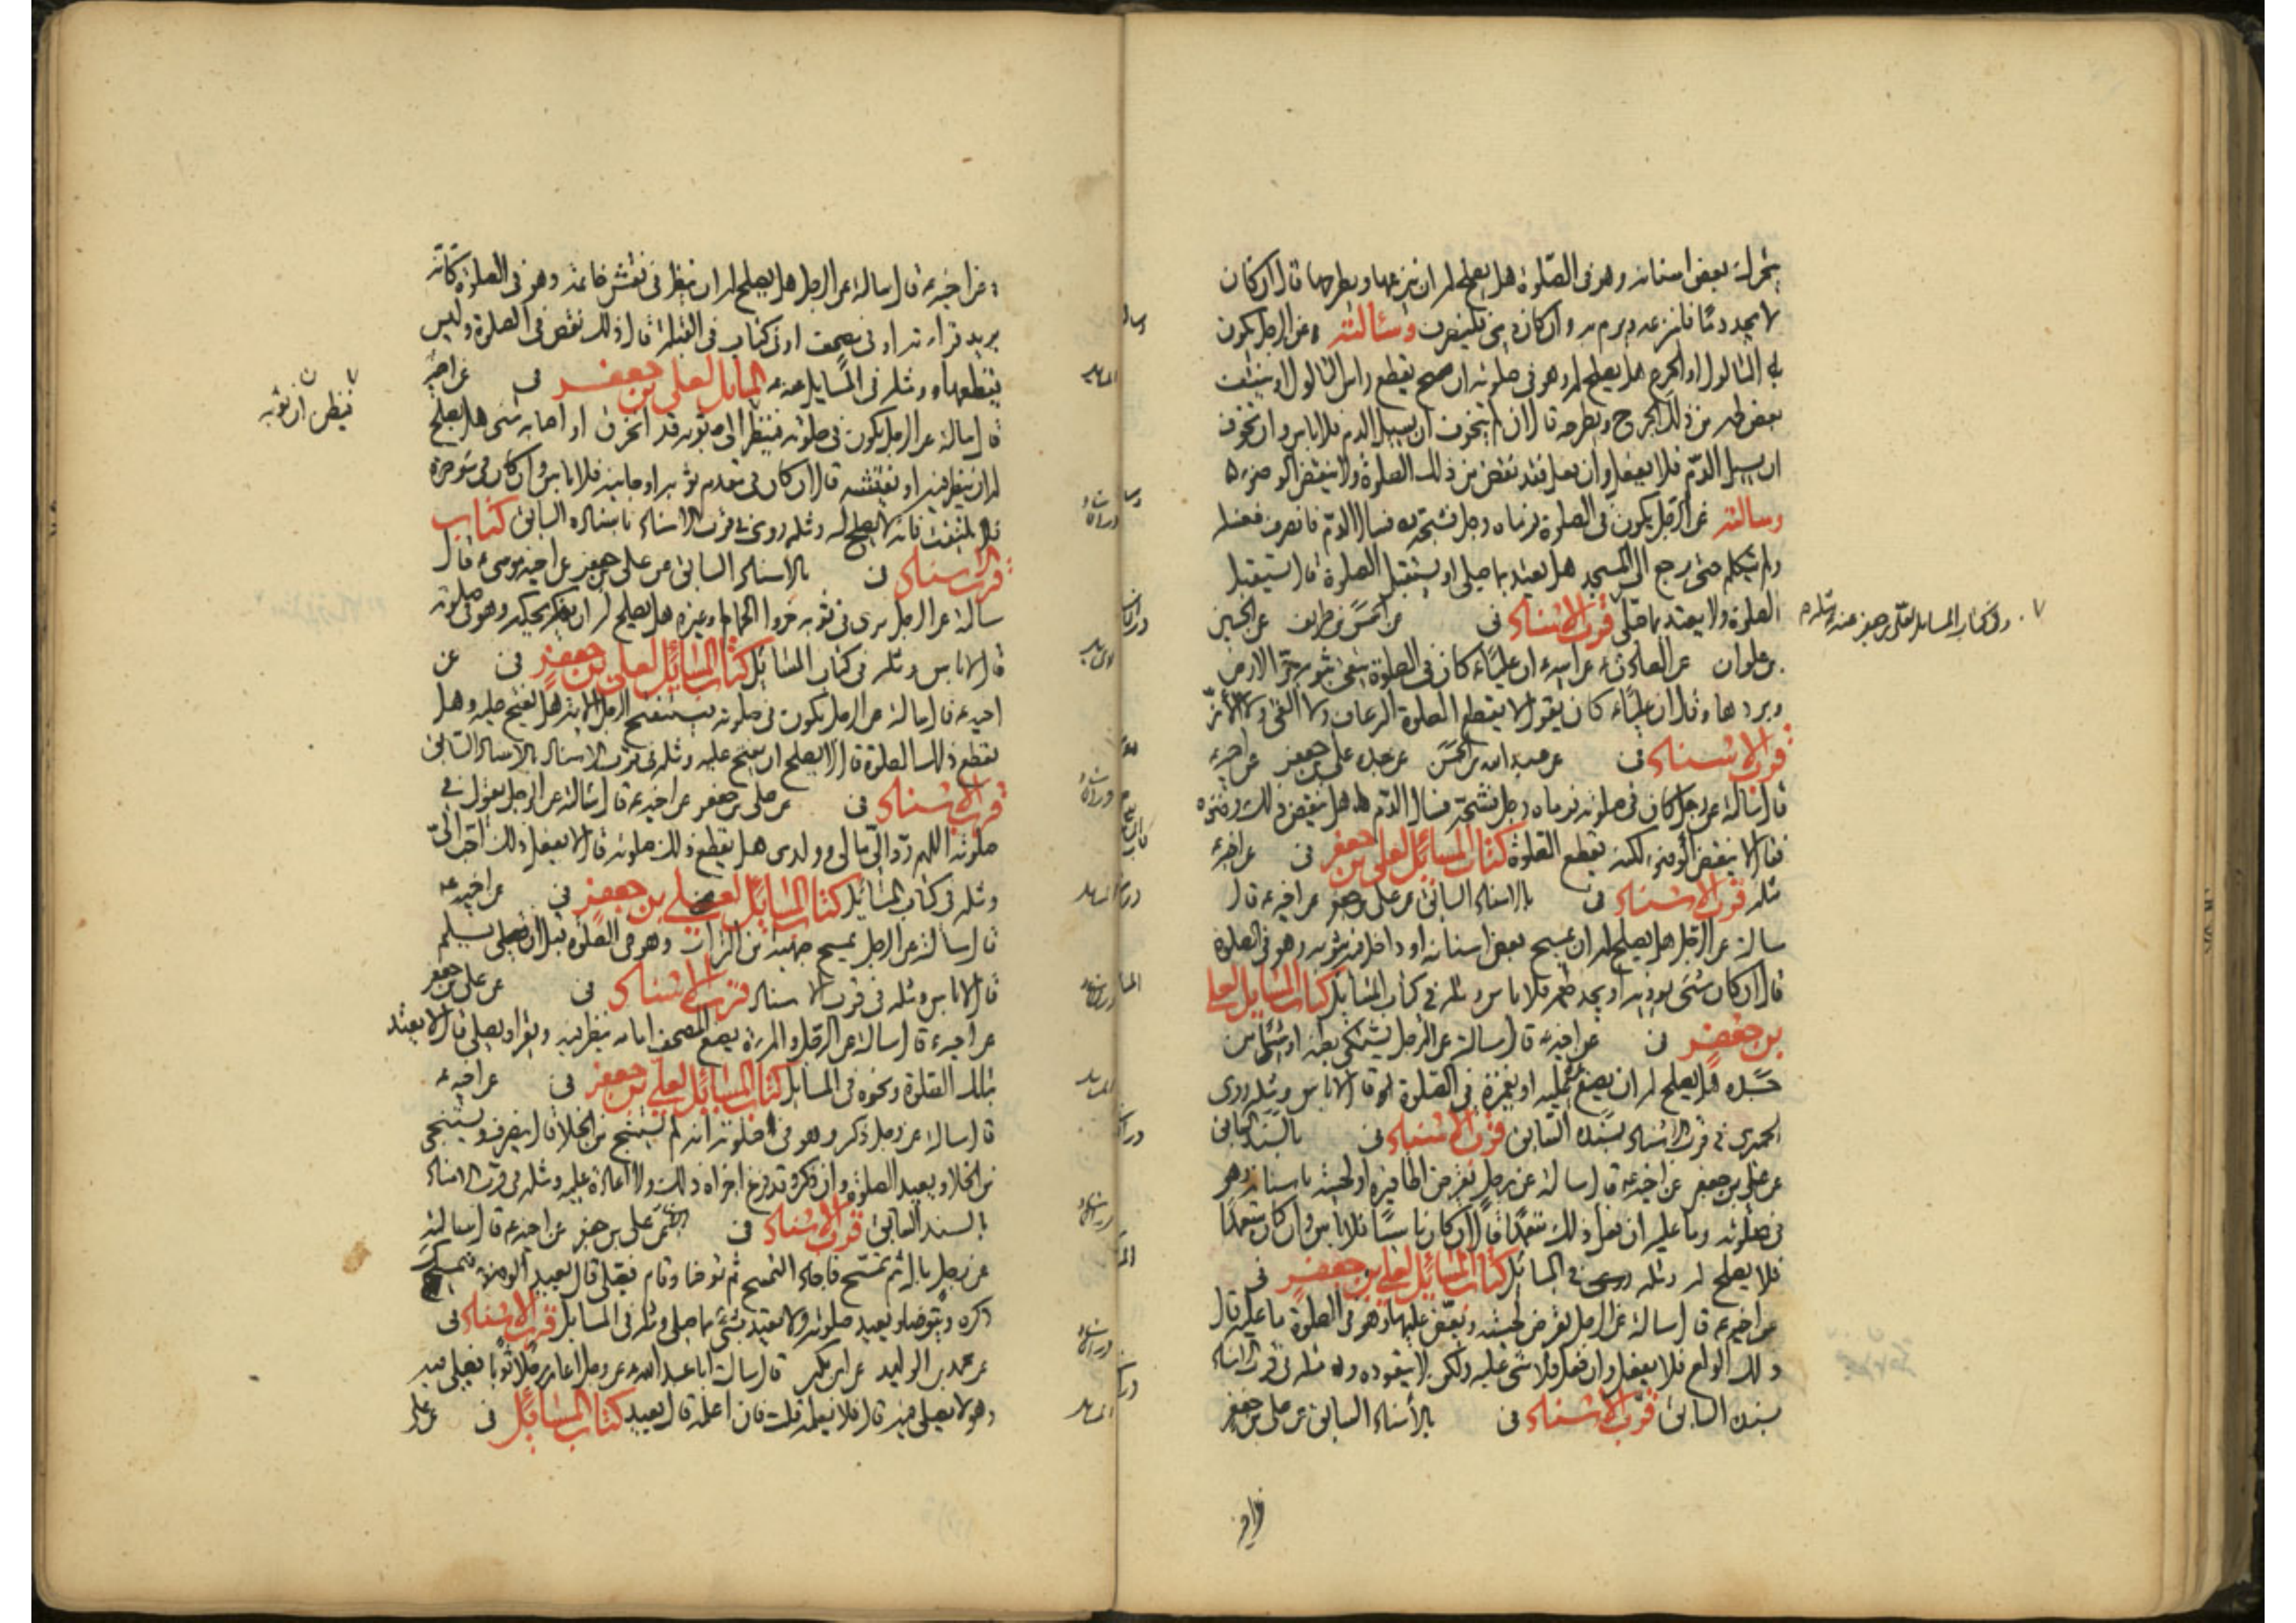 يتحرك بعض اسنانه وهو فى الصّلوة هل يصلح له ان ينزعها ويطرحها قال ان كان
لا يجد دمًا فلينزعه وليرم به وان كان دمى فلينصرف وسئالته وعن الرجل يكون
به الثالول او الجرح هل يصلح له وهو فى صلوته ان يقطع راس الثالول او ينتف
بعض لحمه من ذلك الجرح ويطرحه قال ان لم يتخوف ان يسيل الدم فلا باس وان تخوف
ان يسيل الدّم فلا يفعل وان فعل فقد نقض من ذلك الصلوة ولا ينقض الوضوء
وسالته عن الرجل يكون فى الصلوة فرماه رجل فشجه فسال الدّم فانصرف فغسله
ولم يتكلم حتى رجع الى المسجد هل يعتد بما صلى او يستقبل الصلوة قال يستقبل
الصلوة ولا يعتد بما صلّى قرب الاسناد فى عن الحسن بن طريف عن الحسين
بن علوان عن الصادق ع عن ابيه ع ان عليّا ع كان فى الصلوة يتقى بثوبه حرّ الارض
وبردها وقال ان عليّا ع كان يقول لا يقطع الصلوة الرعاف ولا القئ ولا الأزّ
قرب الاسناد فى عن عبد الله بن الحسن عن جده على بن جعفر عن اخيه ع
قال سالته عن رجل كان فى صلوته فرماه رجل فشجّه فسال الدّم هل ينقض ذلك وضوءه
فقال لا ينقض الوضوء لكنه يقطع الصلوة كتاب المسائل لعلى بن جعفر فى عن اخيه ع
مثله قرب الاسناد فى بالاسناد السابق عن على بن جعفر عن اخيه ع قال
سالته عن الرجل هل يصلح له ان يمسح بعض اسنانه او داخل فيه بثوبه وهو فى الصلوة
قال ان كان شئ يوذيه او يجد طعمه فلا باس ومثله فى كتاب المسايل كتاب المسايل لعلى
بن جعفر فى عن اخيه ع قال سالته عن الرجل يشتكى بطنه او شيئا من
جسده هل يصلح له ان يضع يده عليه او يغمزه فى الصلوة قال لا باس ومثله روى
الحميرى فى قرب الاسناد بسنده السابق قرب الاسناد فى بالسند السابق
عن على بن جعفر عن اخيه ع قال سالته عن رجل يقرض اظافيره او لحيته باسنانه وهو
فى صلوته وما عليه ان فعل ذلك متعمدًا قال ان كان ناسيًا فلا باس وان كان متعمدًا
فلا يصلح له ومثله فى المسائل كتاب المسائل لعلى بن جعفر فى
عن اخيه ع قال سالته عن الرجل يقرض لحيته ويعضّ عليها وهو فى الصلوة ما عليه قال
ذلك الولع فلا يفعل وان فعل فلا شئ عليه ولكن لا يتعوده ومثله فى قرب الاسناد
بسنده السابق قرب الاسناد فى بالأسناد السابق عن على بن جعفر
وفى كتاب المسايل لعلى بن جعفر عنه ع مثله
عن اخيه ع قال سالته عن الرجل هل يصلح له ان ينظر فى نقش خاتمه وهو فى الصلوة كانه
يريد قراءته او فى مصحف او فى كتاب فى القبلة قال ذلك نقص فى الصلوة وليس
يقطعها ومثله فى المسايل عنه ع المسايل لعلى بن جعفر فى عن اخيه
قال سالته عن الرجل يكون فى صلوته فينظر الى ثوبه قد انخرق او اصابه شئ هل يصلح
له ان ينظر فيه او يفتشه قال ان كان فى مقدم ثوبه او جانبيه فلا باس وان كان فى مؤخره
فلا يلتفت فانه لا يصلح له ومثله روى فى قرب الاسناد باسناده السابق كتاب
قرب الاسناد فى بالاسناد السابق عن على بن جعفر عن اخيه موسى ع قال
سالته عن الرجل يرى فى ثوبه خرو الحمام او غيره هل يصلح له ان يحكه وهو فى صلوته
قال لا باس ومثله فى كتاب المسايل كتاب المسايل لعلى بن جعفر فى عن
اخيه ع قال سالته عن الرجل يكون فى صلوته يستفتح الرجل الاية هل يفتح عليه وهل
يقطع ذلك الصلوة قال لا يصلح ان يفتح عليه ومثله فى قرب الاسناد بالاسناد السابق
قرب الاسناد فى عن على بن جعفر عن اخيه ع قال سالته عن الرجل يقول فى
صلوته اللهم ردّ الىّ مالى وولدى هل يقطع ذلك صلوته قال لا يفعل ذلك احبّ الىّ
ومثله فى كتاب المسائل كتاب المسائل لعلى بن جعفر فى عن اخيه ع
قال سالته عن الرجل يمسح جبهته من التراب وهو فى الصلوة قبل ان يسلم
قال لا باس ومثله فى قرب الاسناد قرب الاسناد فى عن على بن جعفر
عن اخيه ع قال سالته عن الرجل والمرءة يضع المصحف امامه ينظر فيه ويقرا ويصلى قال لا يعتد
بتلك الصلوة ونحوه فى المسايل كتاب المسايل لعلى بن جعفر فى عن اخيه ع
قال سالته عن رجل ذكر وهو فى صلوته انه لم يستنج من الخلا قال ينصرف ويستنجى
من الخلا ويعيد الصلوة وان ذكر وقد فرغ اجزاه ذلك ولا اعادة عليه ومثله فى قرب الاسناد
بالسند السابق قرب الاسناد فى عن على بن جعفر عن اخيه ع قال سالته
عن رجل بال ثم تمسّح فاجاد التمسح ثم توضا وقام فصلى قال يعيد الوضوء فيمسك
ذكره ويتوضا ويعيد صلوته ولا يعتد بشئ مما صلى ومثله فى المسايل قرب الاسناد فى
عن محمد بن الوليد عن ابن بكير قال سالت ابا عبد الله ع عن رجل اعار رجلا ثوبًا فصلى فيه
وهو لا يصلى فيه قال فلا يعلمه قلت فان اعلمه قال يعيد كتاب المسائل فى عن على
فينظر ان ثوبه